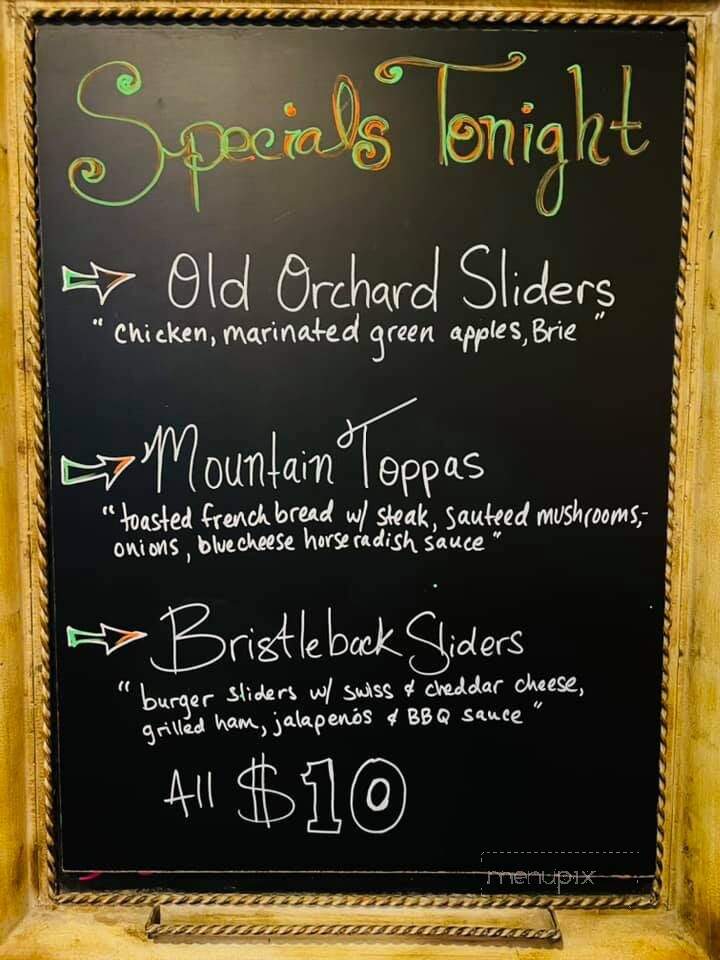 Specials Tonight
Old Orchard Sliders
"chicken, marinated green apples, Brie"
Mountain Toppas
"toasted french bread w/ steak, sauteed mushrooms,-
onions, bluecheese horseradish sauce"
Bristleback Sliders
"burger sliders w/ swiss & cheddar cheese,
grilled ham, jalapenós & BBQ sauce"
All $10
menupix